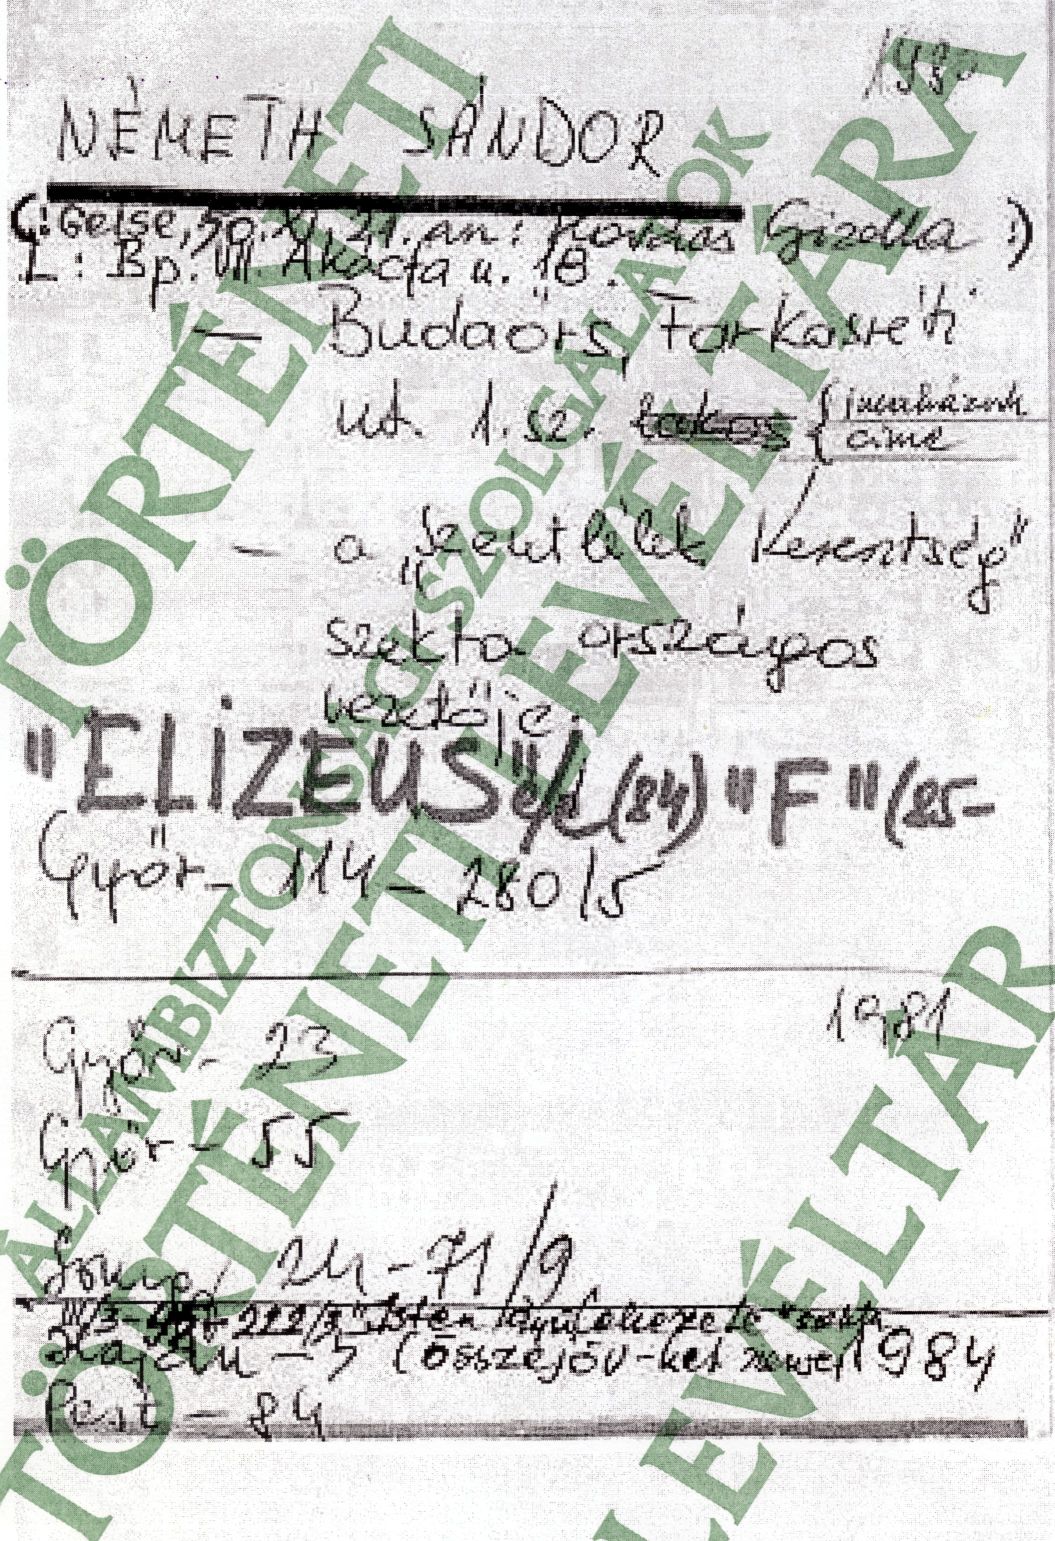 1980
NÉMETH SÁNDOR
(: Gelse, 50. XI. 21. an: Kovács Gizella :)
L: Bp. VII. Akácfa u. 18.
— Budaörs, Farkasréti
út. 1. sz. lakos { imaházunk
címe
— a „Szentlélek Keresztség"
szekta országos
vezetője.
"ELIZEUS" (84) "F" (85-
Győr - 114 - 280/5
1981
Győr - 23
Győr - 55
24-71/9
III/3- 222/3 "Isten Gyülekezete"
Hajdu - (összejöv-ket 1984
Pest - 84
ÁLLAMBIZTONSÁGI SZOLGÁLATOK
TÖRTÉNETI LEVÉLTÁRA
TÖRTÉNETI LEVÉLTÁR